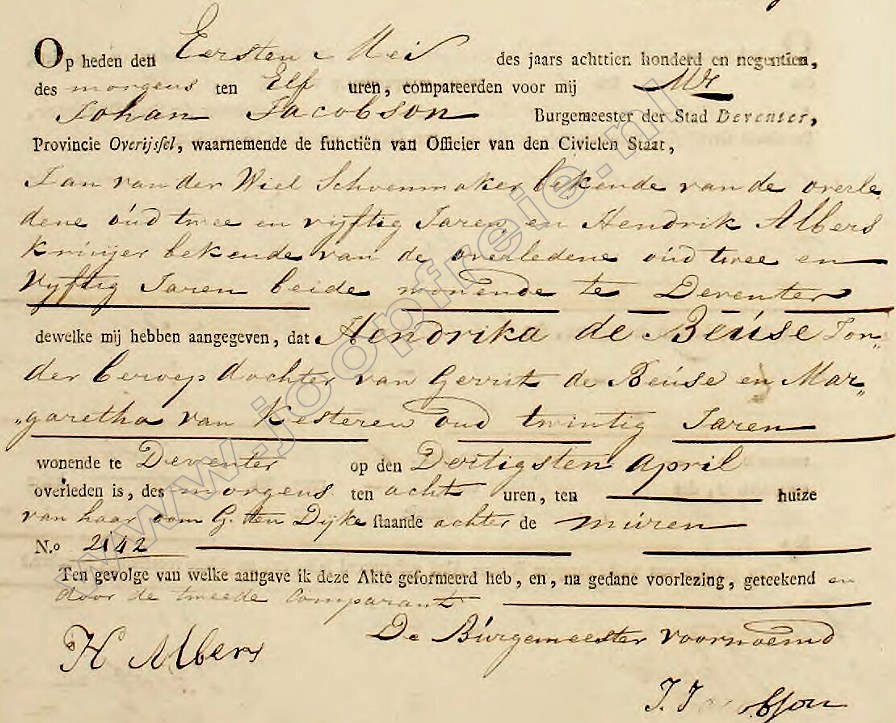 Op heden den Eersten Mei des jaars achttien honderd en negentien,
des morgens ten Elf uren, compareerden voor mij Mr
Johan Jacobson Burgemeester der Stad Deventer,
Provincie Overijssel, waarnemende de functiën van Officier van den Civielen Staat,
Jan van der Wiel Schoenmaker bekende van de overle
dene oud twee en vyftig Jaren, en Hendrik Albers
bekende van de overledene oud twee en
Vyftig Jaren beide wonende te Deventer
dewelke mij hebben aangegeven, dat Hendrika de Beúse zon„
der beroep dochter van Gerrit de Beúse en Mar„
„garetha van Kesteren oud twintig Jaren
wonende te Deventer op den Dertigsten April
overleden is, des morgens ten acht uren, ten huize
van haar oom G. ten Dijke staande achter de múren
N.o 2142
Ten gevolge van welke aangave ik deze Akte geformeerd heb, en, na gedane voorlezing, geteekend en
door de tweede Comparant
De Búrgemeester voornoemd
H Albers
J. Jacobson
www.joopfreie.nl